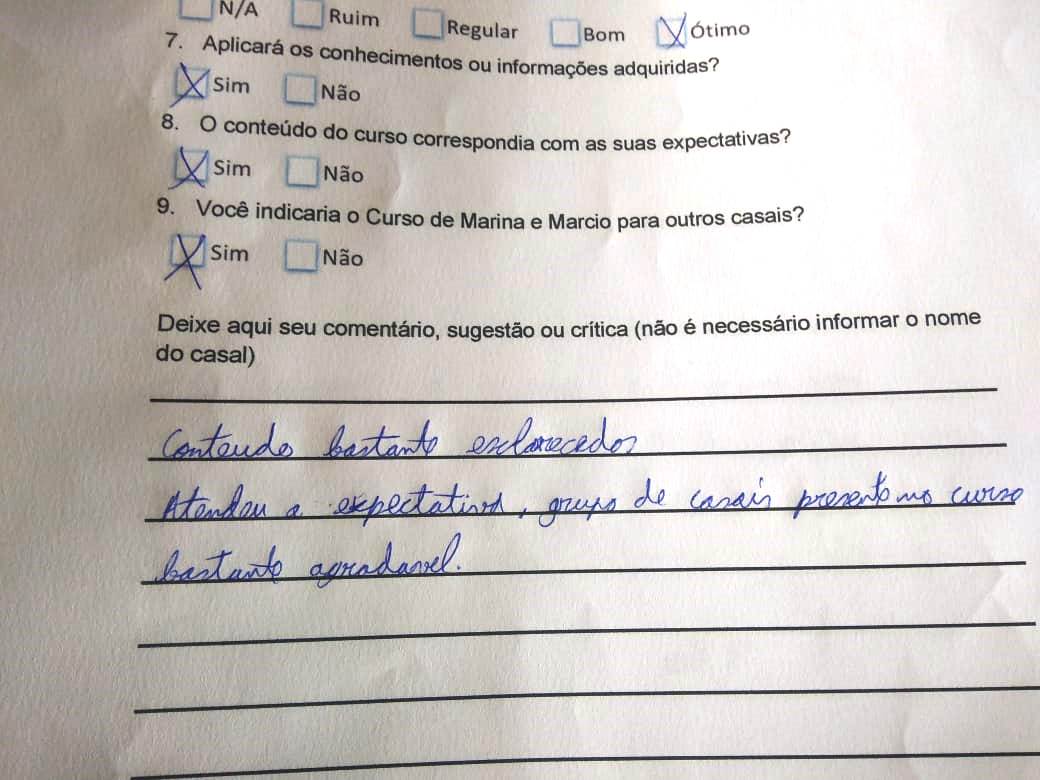 N/A Ruim Regular Bom Ótimo
7. Aplicará os conhecimentos ou informações adquiridas?
Sim Não
8. O conteúdo do curso correspondia com as suas expectativas?
Sim Não
9. Você indicaria o Curso de Marina e Marcio para outros casais?
Sim Não
Deixe aqui seu comentário, sugestão ou crítica (não é necessário informar o nome
do casal)
Conteudo bastante esclarecedor
Atendeu a expectativa, grupo de casais presente no curso
bastante agradavel.